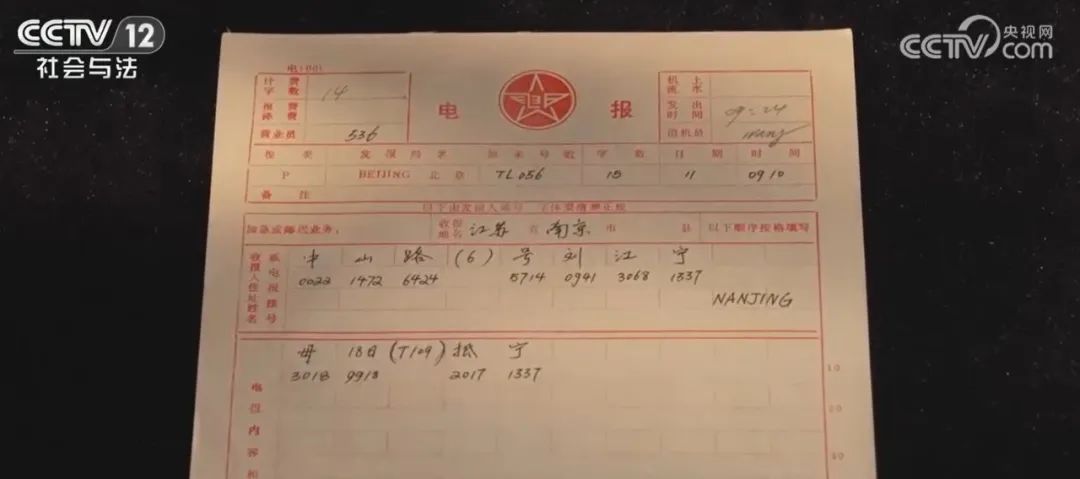 CCTV 12
社会与法
央视网
CCTV com
计费字数 14
报费
营业员 536
电报
机上流水
发出时间 09:24
值机员 wang
报类 发报局名 原来号数 字数 日期 时间
P BEIJING 北京 TL056 15 11 0910
备注
以下由发报人填写
收报地名 江苏 省 南京 市 县 以下顺序按格填写
收报人住址姓名
中 山 路 (6) 号 刘 江 宁
0022 1472 6424 5714 0941 3068 1337
NANJING
母 18日 (T109) 抵 宁
3018 9918 2017 1337
电报内容
10
20